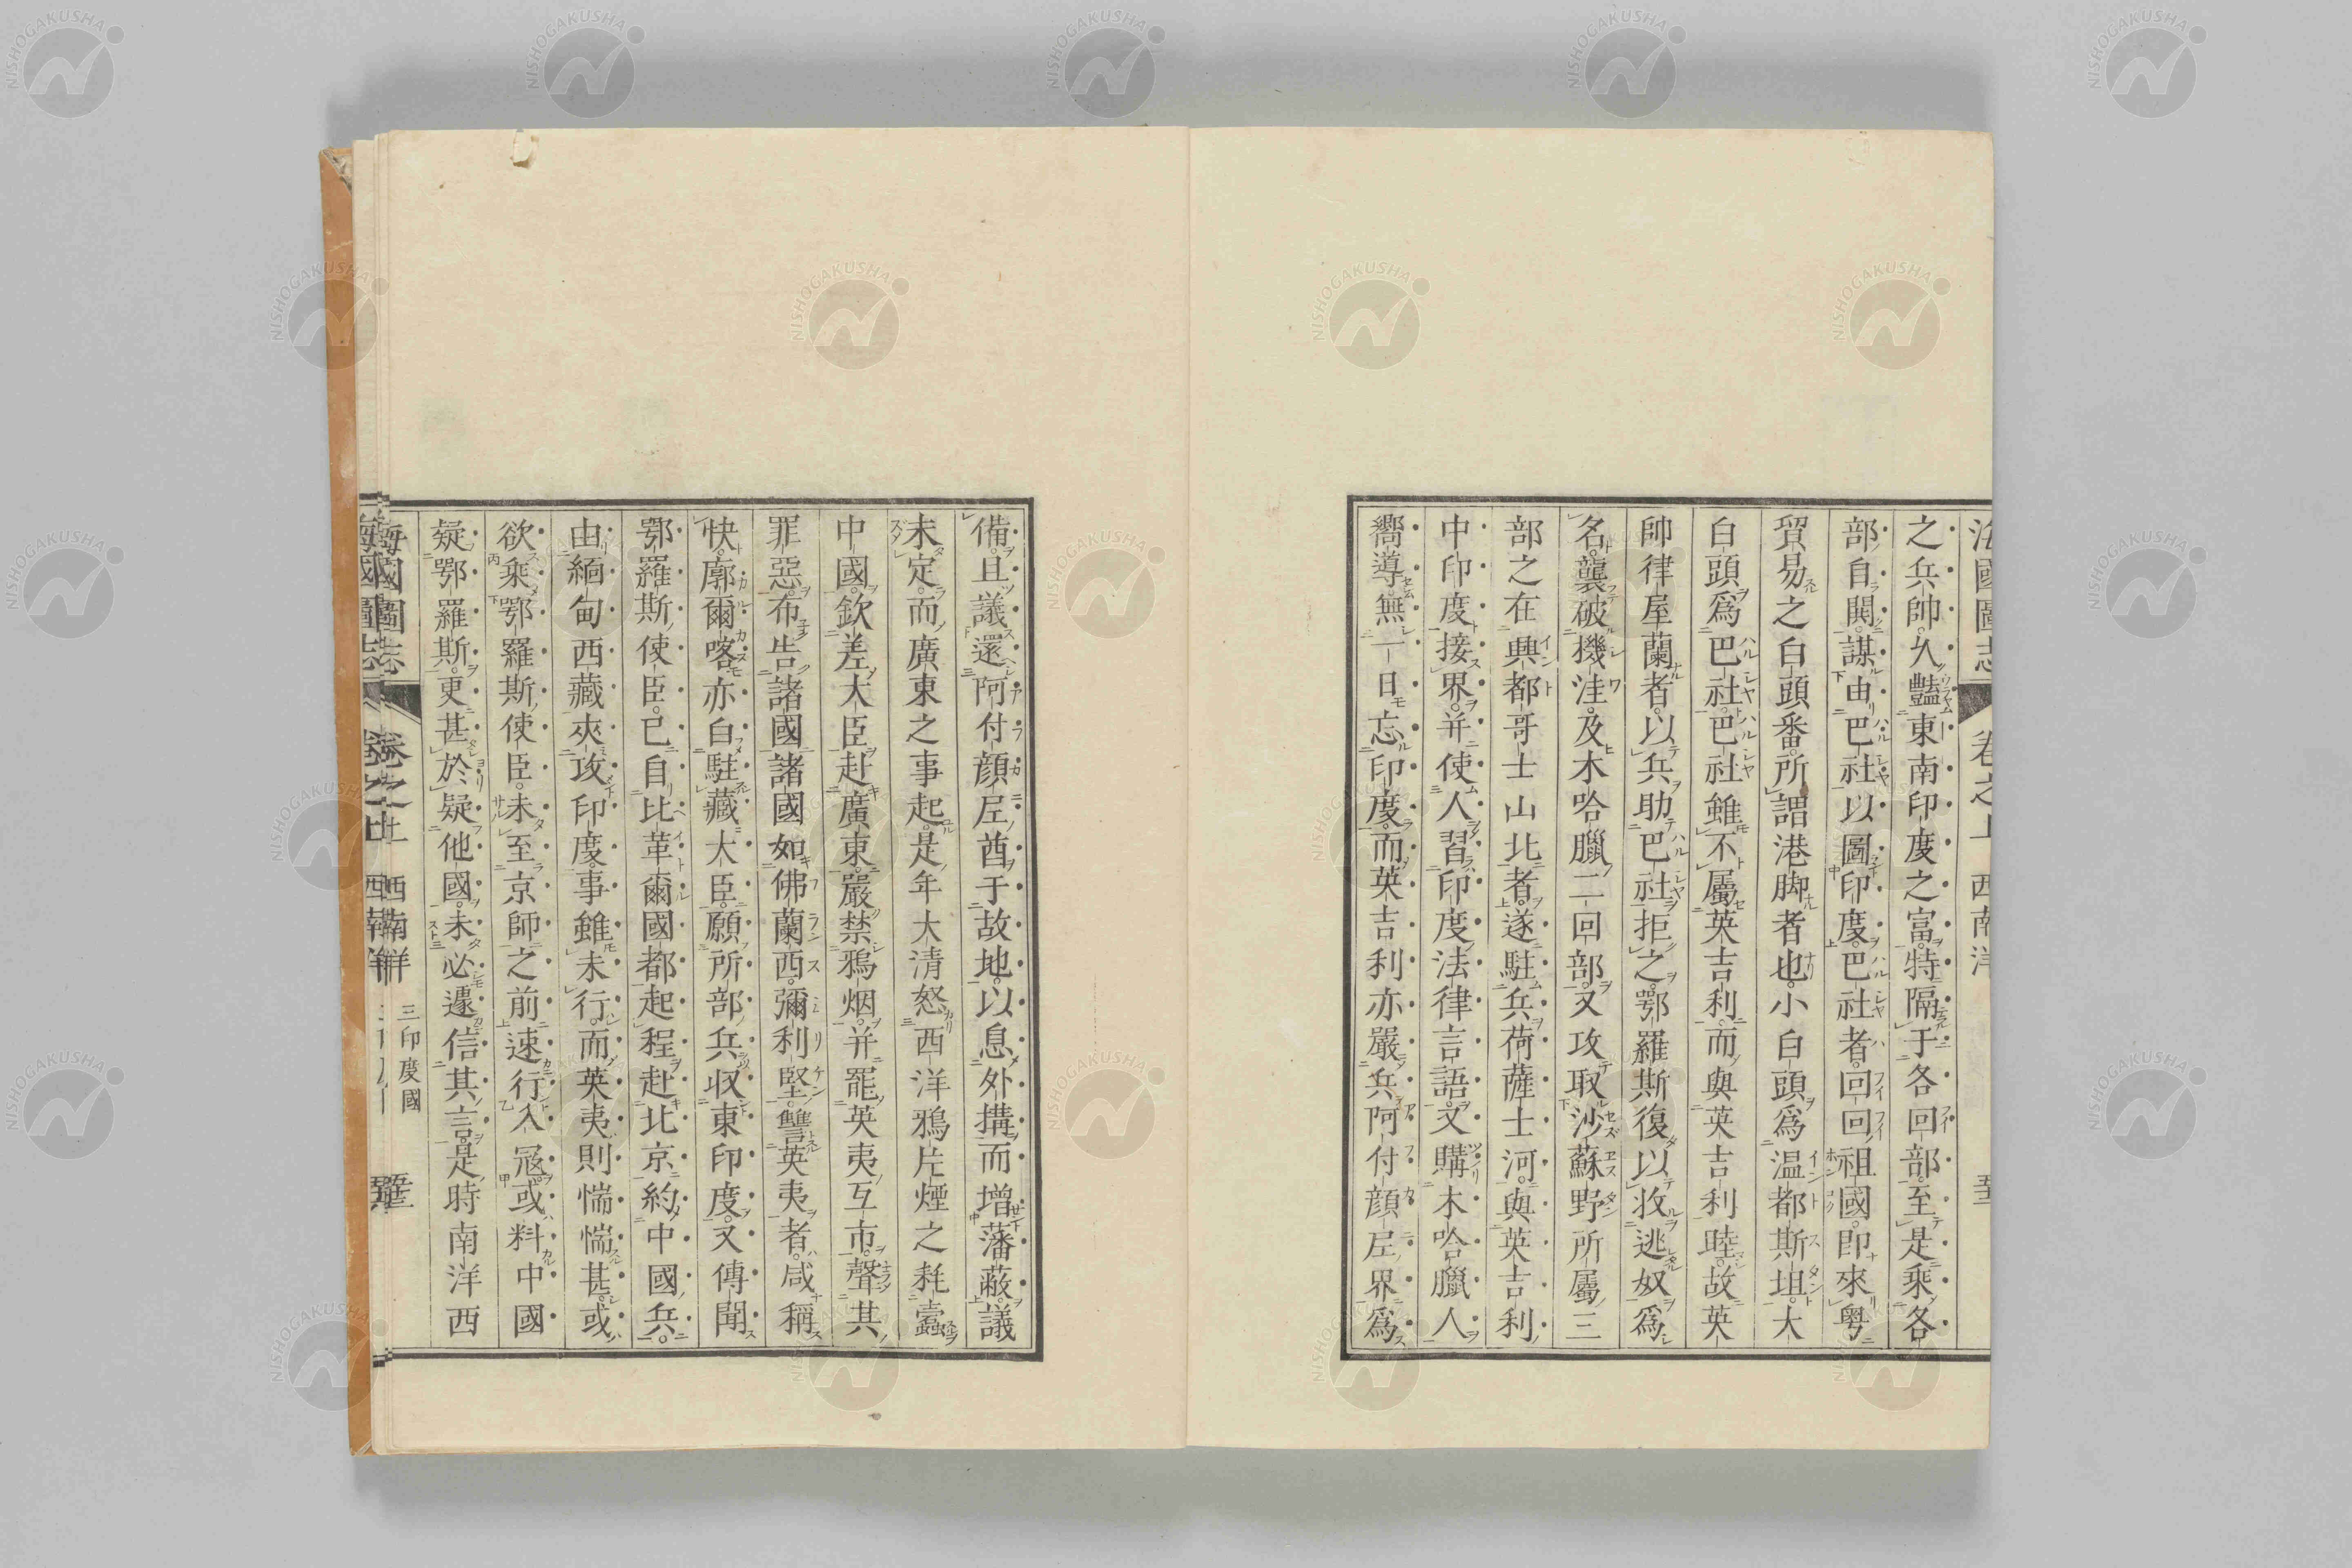 海國圖志 卷之上 西南洋
之兵帥久豔東南印度之富特隔于各回部至是乘各
部自鬩謀由巴社以圖印度巴社者回回祖國即來粵
貿易之白頭番所謂港脚者也小白頭爲温都斯坦大
白頭爲巴社巴社雖不屬英吉利而與英吉利睦故英
帥律屋蘭者以兵助巴社拒之鄂羅斯復以收逃奴爲
名襲破機洼及木哈臘二回部又攻取沙蘇野所屬三
部之在興都哥士山北者遂駐兵荷薩士河與英吉利
中印度接界并使人習印度法律言語又購木哈臘人
嚮導無一日忘印度而英吉利亦嚴兵阿付顔尼界爲
備且議還阿付顔尼酋于故地以息外搆而增藩蔽議
未定而廣東之事起是年大清怒西洋鴉片煙之耗蠧
中國欽差大臣赴廣東嚴禁鴉烟并罷英夷互市聲其
罪惡布告諸國諸國如佛蘭西彌利堅讐英夷者咸稱
快廓爾喀亦白駐藏大臣願所部兵収東印度又傳聞
鄂羅斯使臣已自比革爾國都起程赴北京約中國兵
由緬甸西藏夾攻印度事雖未行而英夷則惴惴甚或
欲乘鄂羅斯使臣未至京師之前速行入寇或料中國
疑鄂羅斯更甚於疑他國未必遽信其言是時南洋西
海國圖志 卷之上 西南洋 三印度國
NISHOGAKUSHA